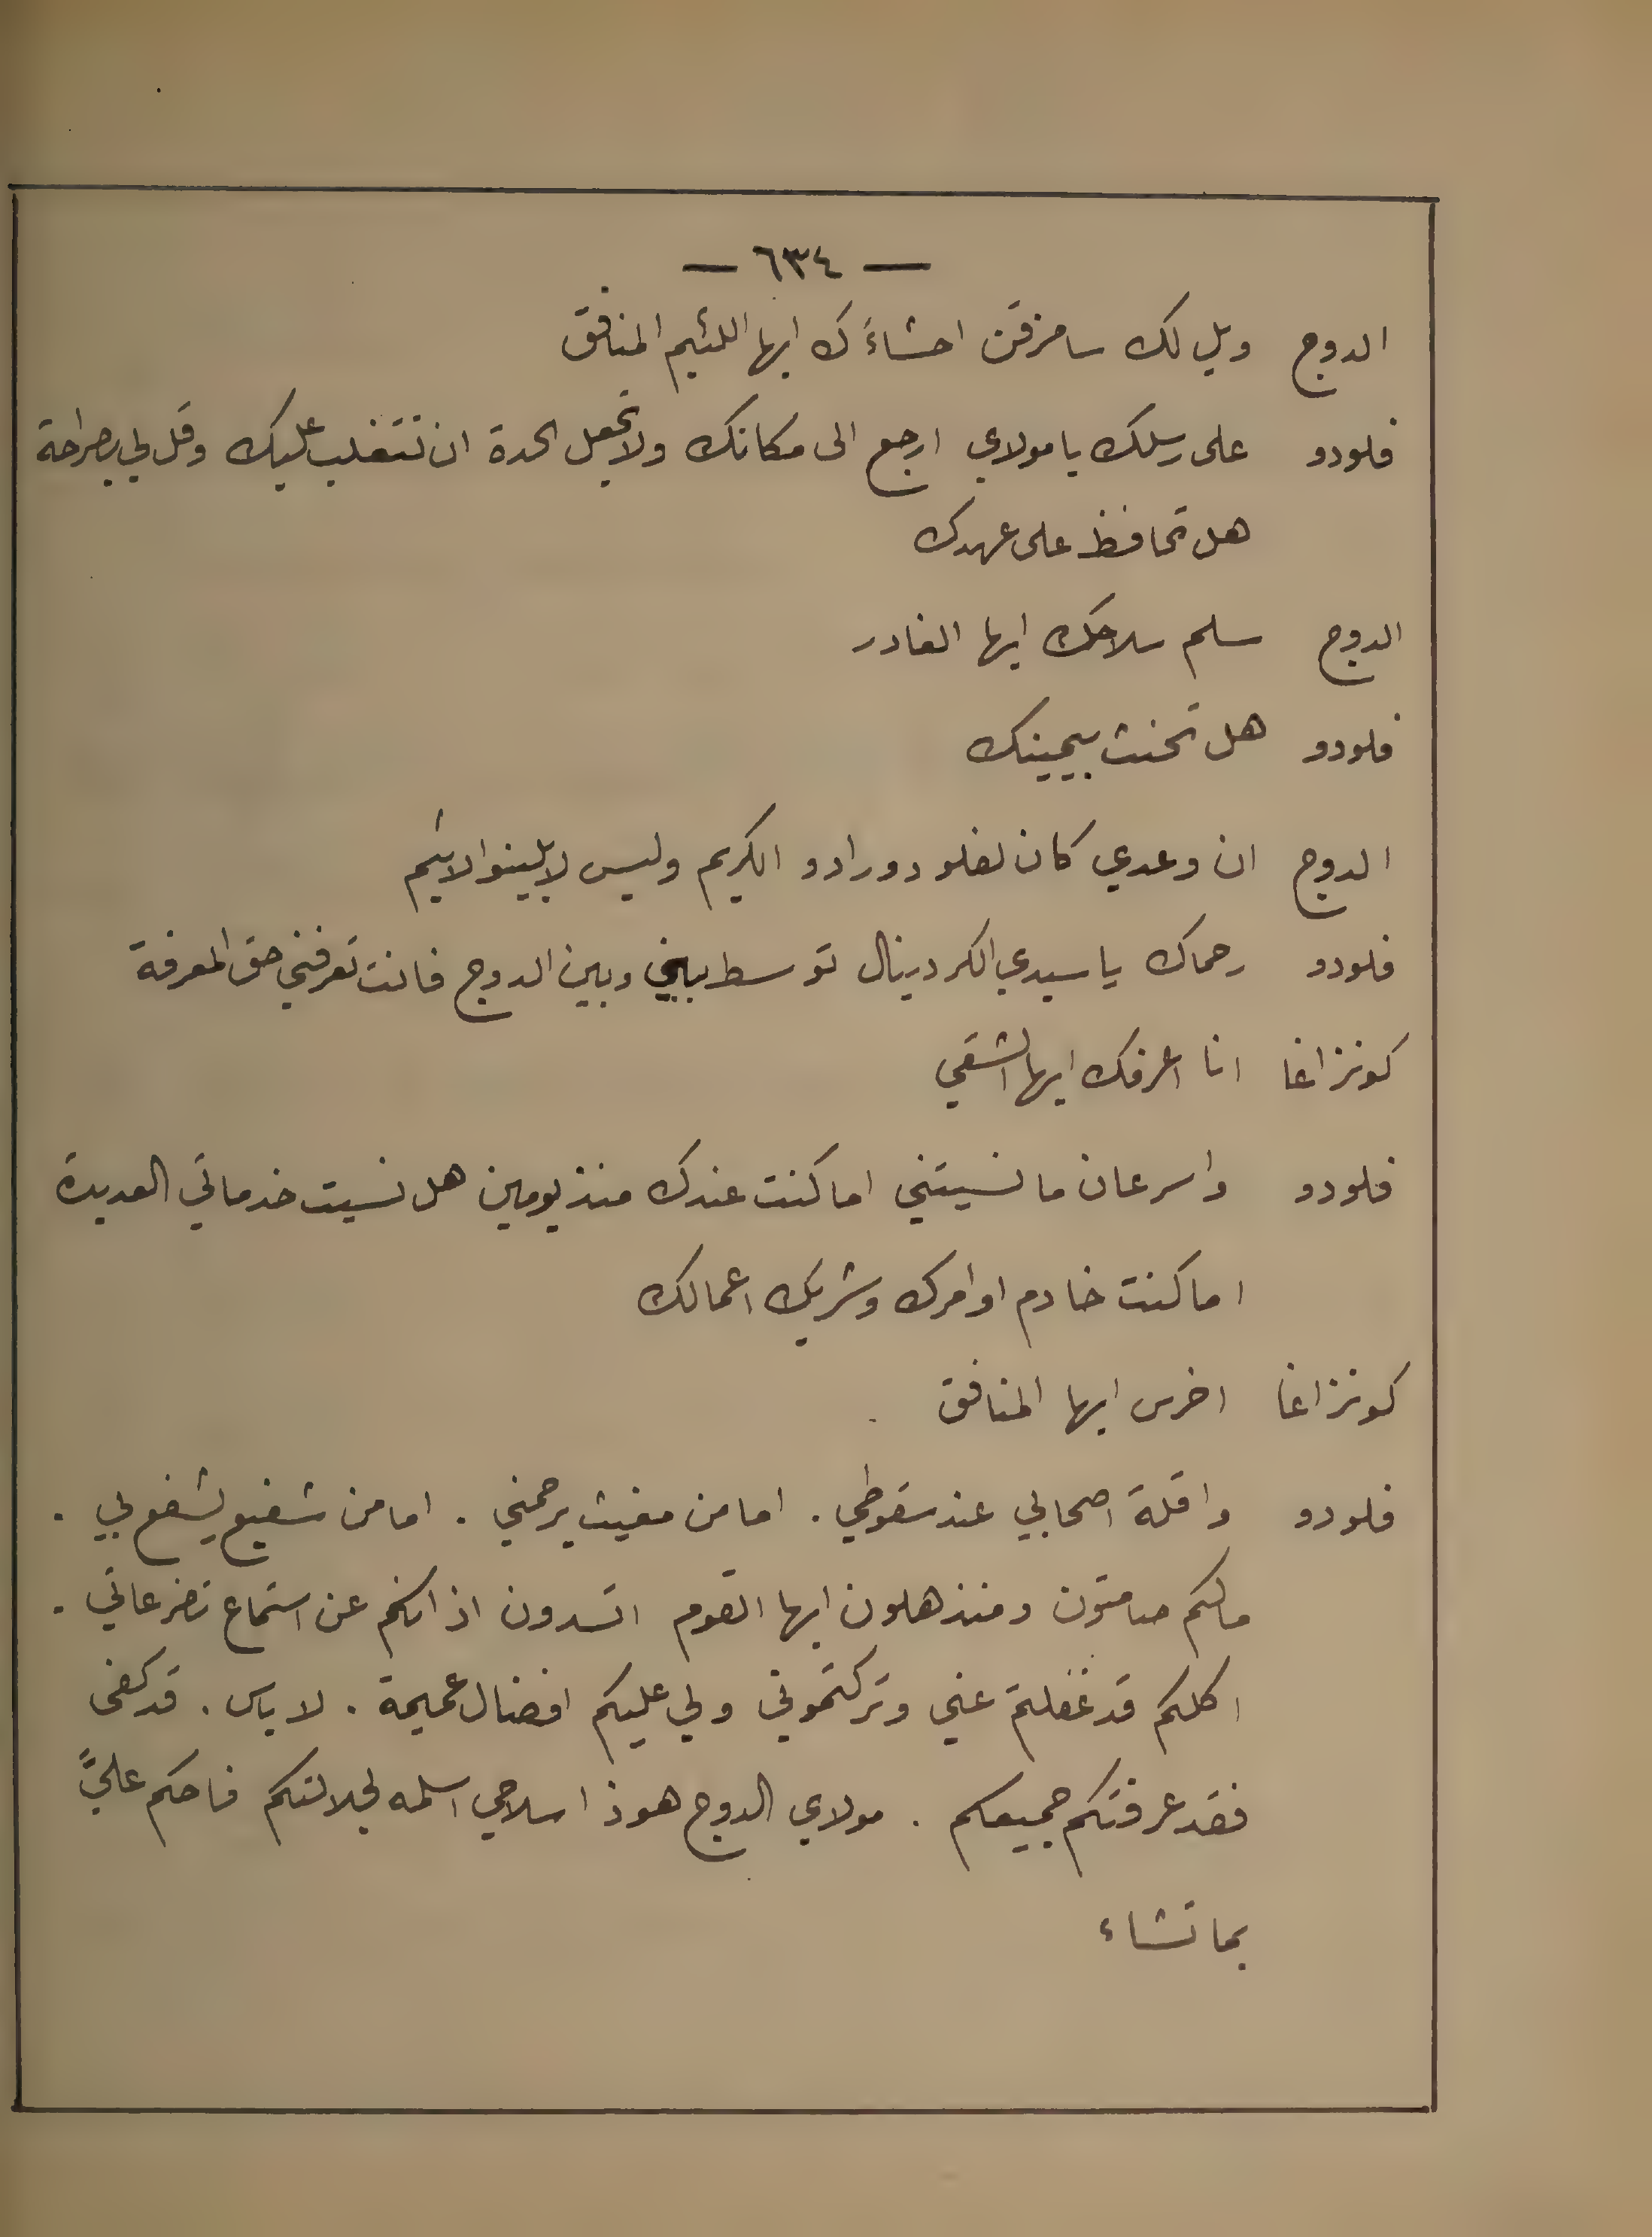 — ٦٣٤ —
الدوج ويل لك سامزقن احشاءَك ايها اللئيم المنافق
فلودو على رسلك يا مولاي ارجع الى مكانك ولا تجعل الحدة ان تتغلب عليك وقل لي بصراحة
هل تحافظ على عهدك
الدوج سلم سلاحك ايها الغادر
فلودو هل تحنث بيمينك
الدوج ان وعدي كان لفلودورادو الكريم وليس لابلينو الاثيم
فلودو رحماك يا سيدي الكردينال توسط بيني وبين الدوج فانت تعرفني حق المعرفة
كونزاغا انا اعرفك ايها الشقي
فلودو واسرعان ما نسيتني اما كنت عندك منذ يومين هل نسيت خدماتي العديدة
اما كنت خادم اوامرك وشريك اعمالك
كونزاغا اخرس ايها المنافق
فلودو واقلة اصحابي عند سقوطي . اما من مغيث يرحمني . اما من شفيع يشفع بي .
مالكم صامتون ومنذهلون ايها القوم اتسدون اذانكم عن استماع تضرعاتي .
اكلكم قد غفلتم عني وتركتموني ولي عليكم افضال عميمة . لا باس . قد كفى
فقد عرفتكم جميعكم . مولاي الدوج هوذا سلاحي اسلمه لجلالتكم فاحكم عليَّ
بما تشاء